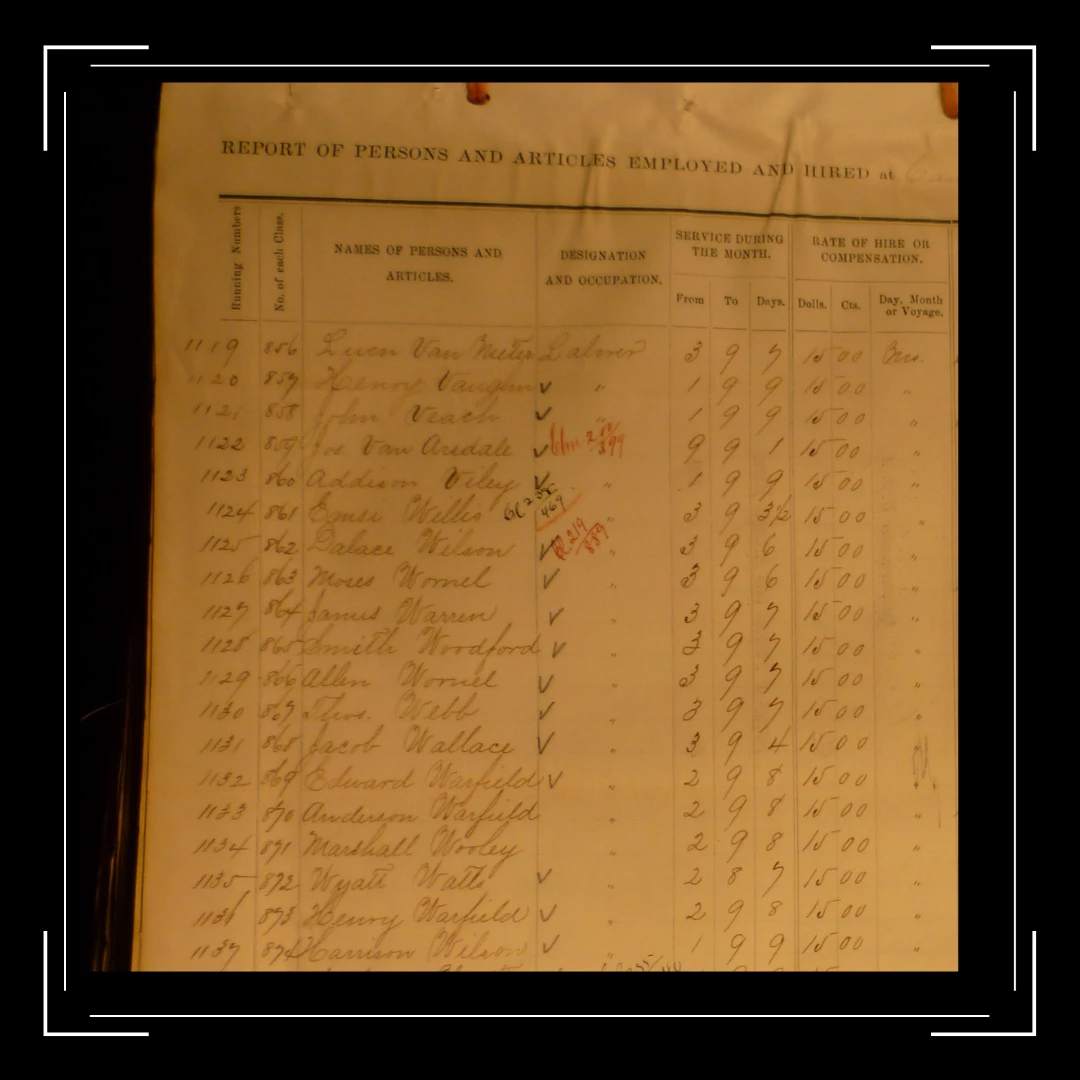 REPORT OF PERSONS AND ARTICLES EMPLOYED AND HIRED at
Running Numbers No. of each Class. NAMES OF PERSONS AND ARTICLES. DESIGNATION AND OCCUPATION. SERVICE DURING THE MONTH. RATE OF HIRE OR COMPENSATION.
From To Days. Dolls. Cts. Day, Month or Voyage.
1119 856 Van Meter Labrer 3 9 7 15 00 Mo.
1120 857 Henry Vaughn ✓ " 1 9 9 15 00 "
1121 858 John Veach ✓ " 1 9 9 15 00 "
1122 859 Jos. Van Arsdale ✓ 9 9 1 15 00
1123 860 Addison Viley ✓ " 1 9 9 15 00 "
1124 861 Willis " 3 9 3½ 15 00 "
1125 862 Dalace Wilson ✓ " 3 9 6 15 00 "
1126 863 Moses Wornel ✓ " 3 9 6 15 00 "
1127 864 James Warren ✓ " 3 9 7 15 00 "
1128 865 Smith Woodford ✓ " 3 9 7 15 00 "
1129 866 Allen Wornel ✓ " 3 9 7 15 00 "
1130 867 Thos. Webb ✓ " 3 9 7 15 00 "
1131 868 Jacob Wallace ✓ " 3 9 4 15 00 "
1132 869 Edward Warfield ✓ " 2 9 8 15 00 "
1133 870 Anderson Warfield " 2 9 8 15 00 "
1134 871 Marshall Wooley " 2 9 8 15 00 "
1135 872 Wyatt Watts ✓ " 2 8 7 15 00 "
1136 873 Henry Warfield ✓ " 2 9 8 15 00 "
1137 874 Harrison Wilson ✓ " 1 9 9 15 00 "